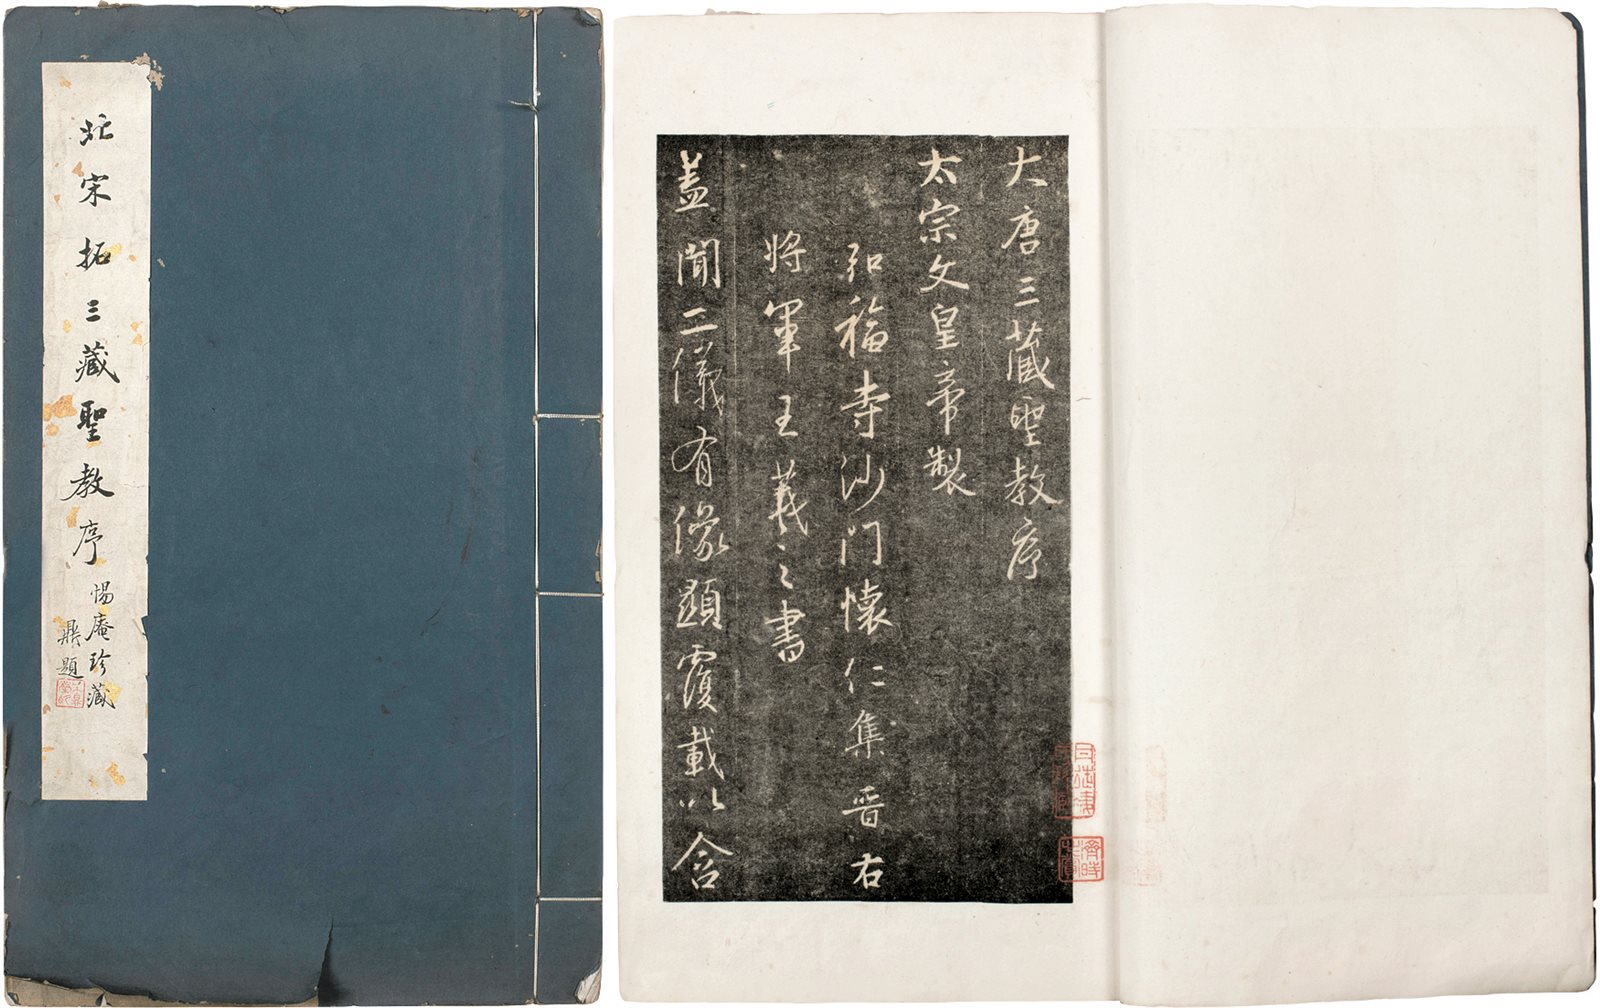 北宋拓三藏聖教序
惕庵珍藏
鼎題
大唐三藏聖教序
太宗文皇帝製
弘福寺沙門懷仁集晉右
將軍王羲之書
蓋聞二儀有像顯覆載以含